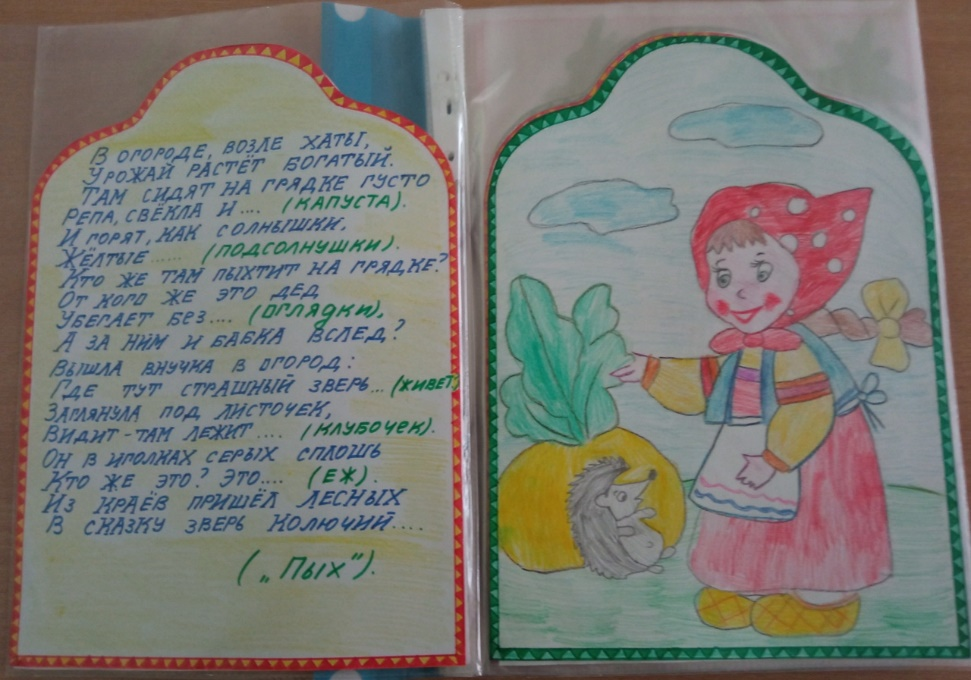 В ОГОРОДЕ, ВОЗЛЕ ХАТЫ,
УРОЖАЙ РАСТЁТ БОГАТЫЙ.
ТАМ СИДЯТ НА ГРЯДКЕ ГУСТО
РЕПА, СВЁКЛА И.... (КАПУСТА).
И ГОРЯТ, КАК СОЛНЫШКИ,
ЖЁЛТЫЕ ...... (ПОДСОЛНУШКИ).
КТО ЖЕ ТАМ ПЫХТИТ НА ГРЯДКЕ?
ОТ КОГО ЖЕ ЭТО ДЕД
УБЕГАЕТ БЕЗ.... (ОГЛЯДКИ),
А ЗА НИМ И БАБКА ВСЛЕД?
ВЫШЛА ВНУЧКА В ОГОРОД:
ГДЕ ТУТ СТРАШНЫЙ ЗВЕРЬ... (ЖИВЕТ)
ЗАГЛЯНУЛА ПОД ЛИСТОЧЕК,
ВИДИТ-ТАМ ЛЕЖИТ .... (КЛУБОЧЕК).
ОН В ИГОЛКАХ СЕРЫХ СПЛОШЬ
КТО ЖЕ ЭТО? ЭТО.... (ЕЖ).
ИЗ КРАЁВ ПРИШЁЛ ЛЕСНЫХ
В СКАЗКУ ЗВЕРЬ КОЛЮЧИЙ....
(„ПЫХ").